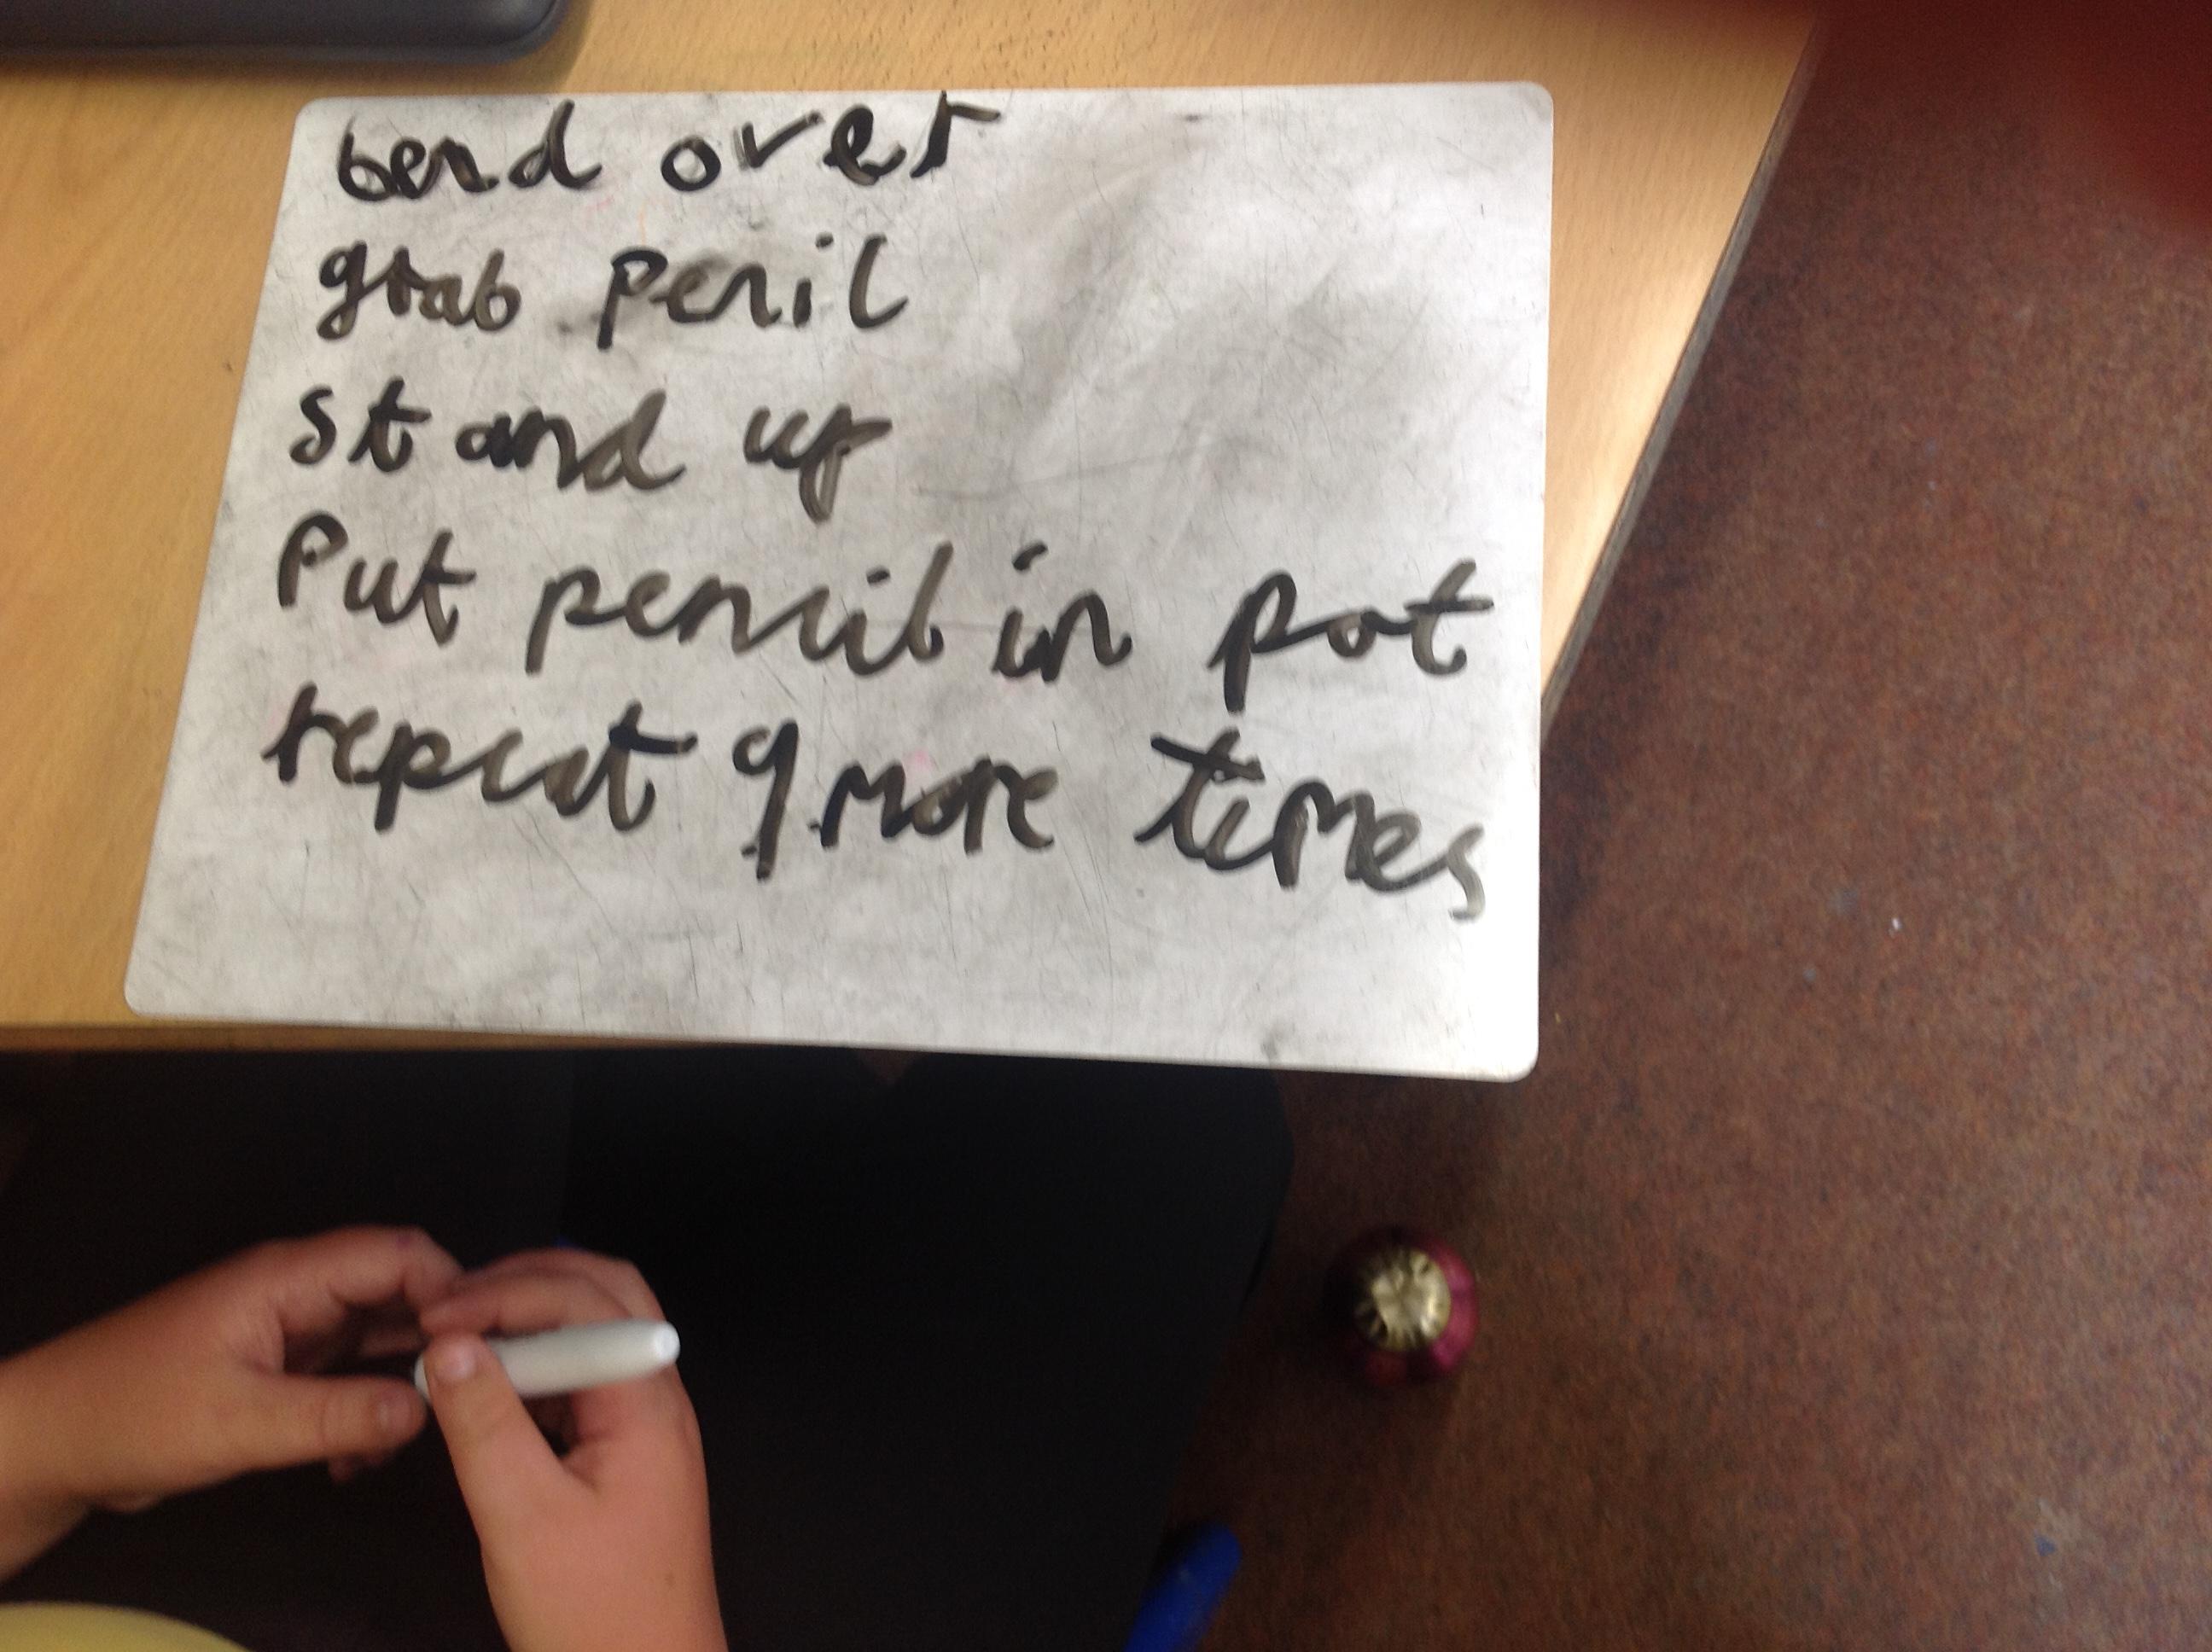 bend over
grab penil
stand up
Put pencil in pot
repeat 9 more times